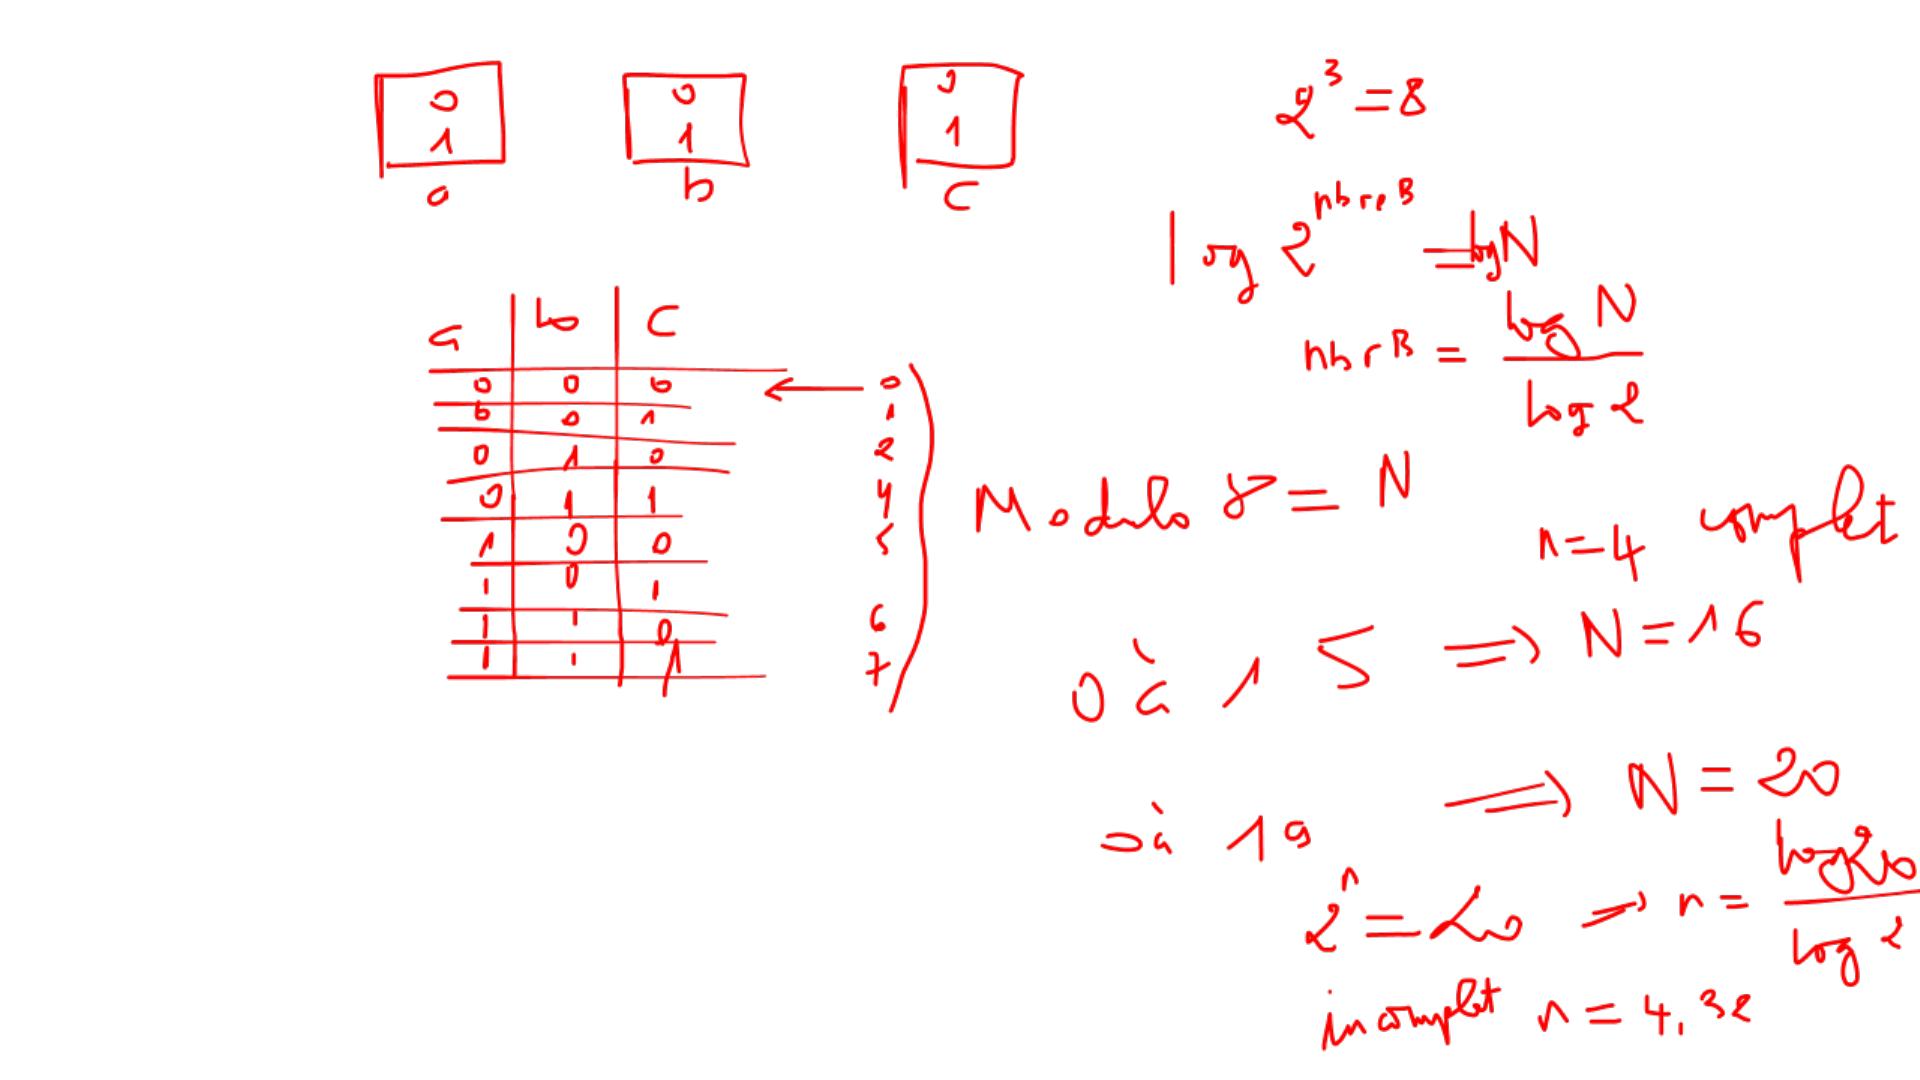 0 0 0
1 1 1
a b c
2^3 = 8
log 2^nbreB = log N
nbrB = log N / log 2
a b c
0 0 0 ← 0
0 0 1 1
0 1 0 2
0 1 1 4
1 0 0 5
1 0 1
1 1 0 6
1 1 1 7
Modulo 8 = N
n=4 complet
0 à 15 ⇒ N = 16
0 à 19 ⇒ N = 20
2^n = 20 ⇒ n = log 20 / log 2
incomplet n = 4,32